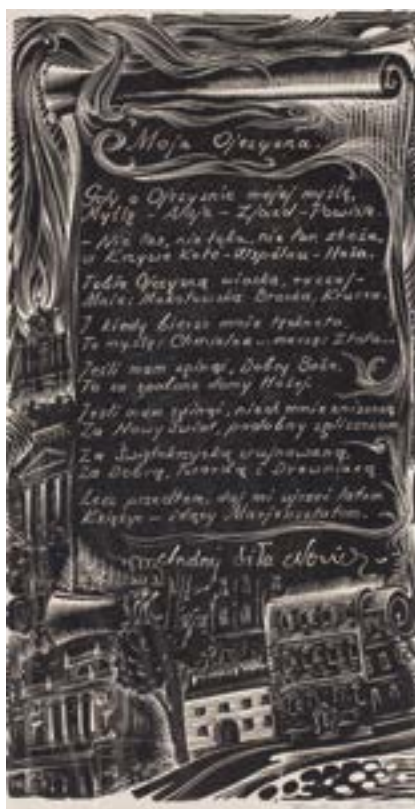 Moja Ojczyzna.
Gdy o Ojczyźnie mojej myślę,
Myślę - Aleja - Zjazd - Powiśle.
- Nie las, nie łąka, nie łan zboża,
a Krzywe Koło - Wspólna - Hoża.
Tobie Ojczyzną wioska, ruczaj -
Mnie: Mokotowska, Bracka, Krucza.
I kiedy bierze mnie tęsknota,
To myślę: Chmielna... marzę: Złota...
Jeśli mam zginąć, Dobry Boże,
To za spalone domy Hożej.
Jeśli mam zginąć, niech mnie zniszczą
Za Nowy Świat, podobny zgliszczom
Za Świętokrzyską zrujnowaną,
Za Dobrą, Twardą i Drewnianą
Lecz przedtem, daj mi ujrzeć latem
Księżyc - idący Mariensztatem.